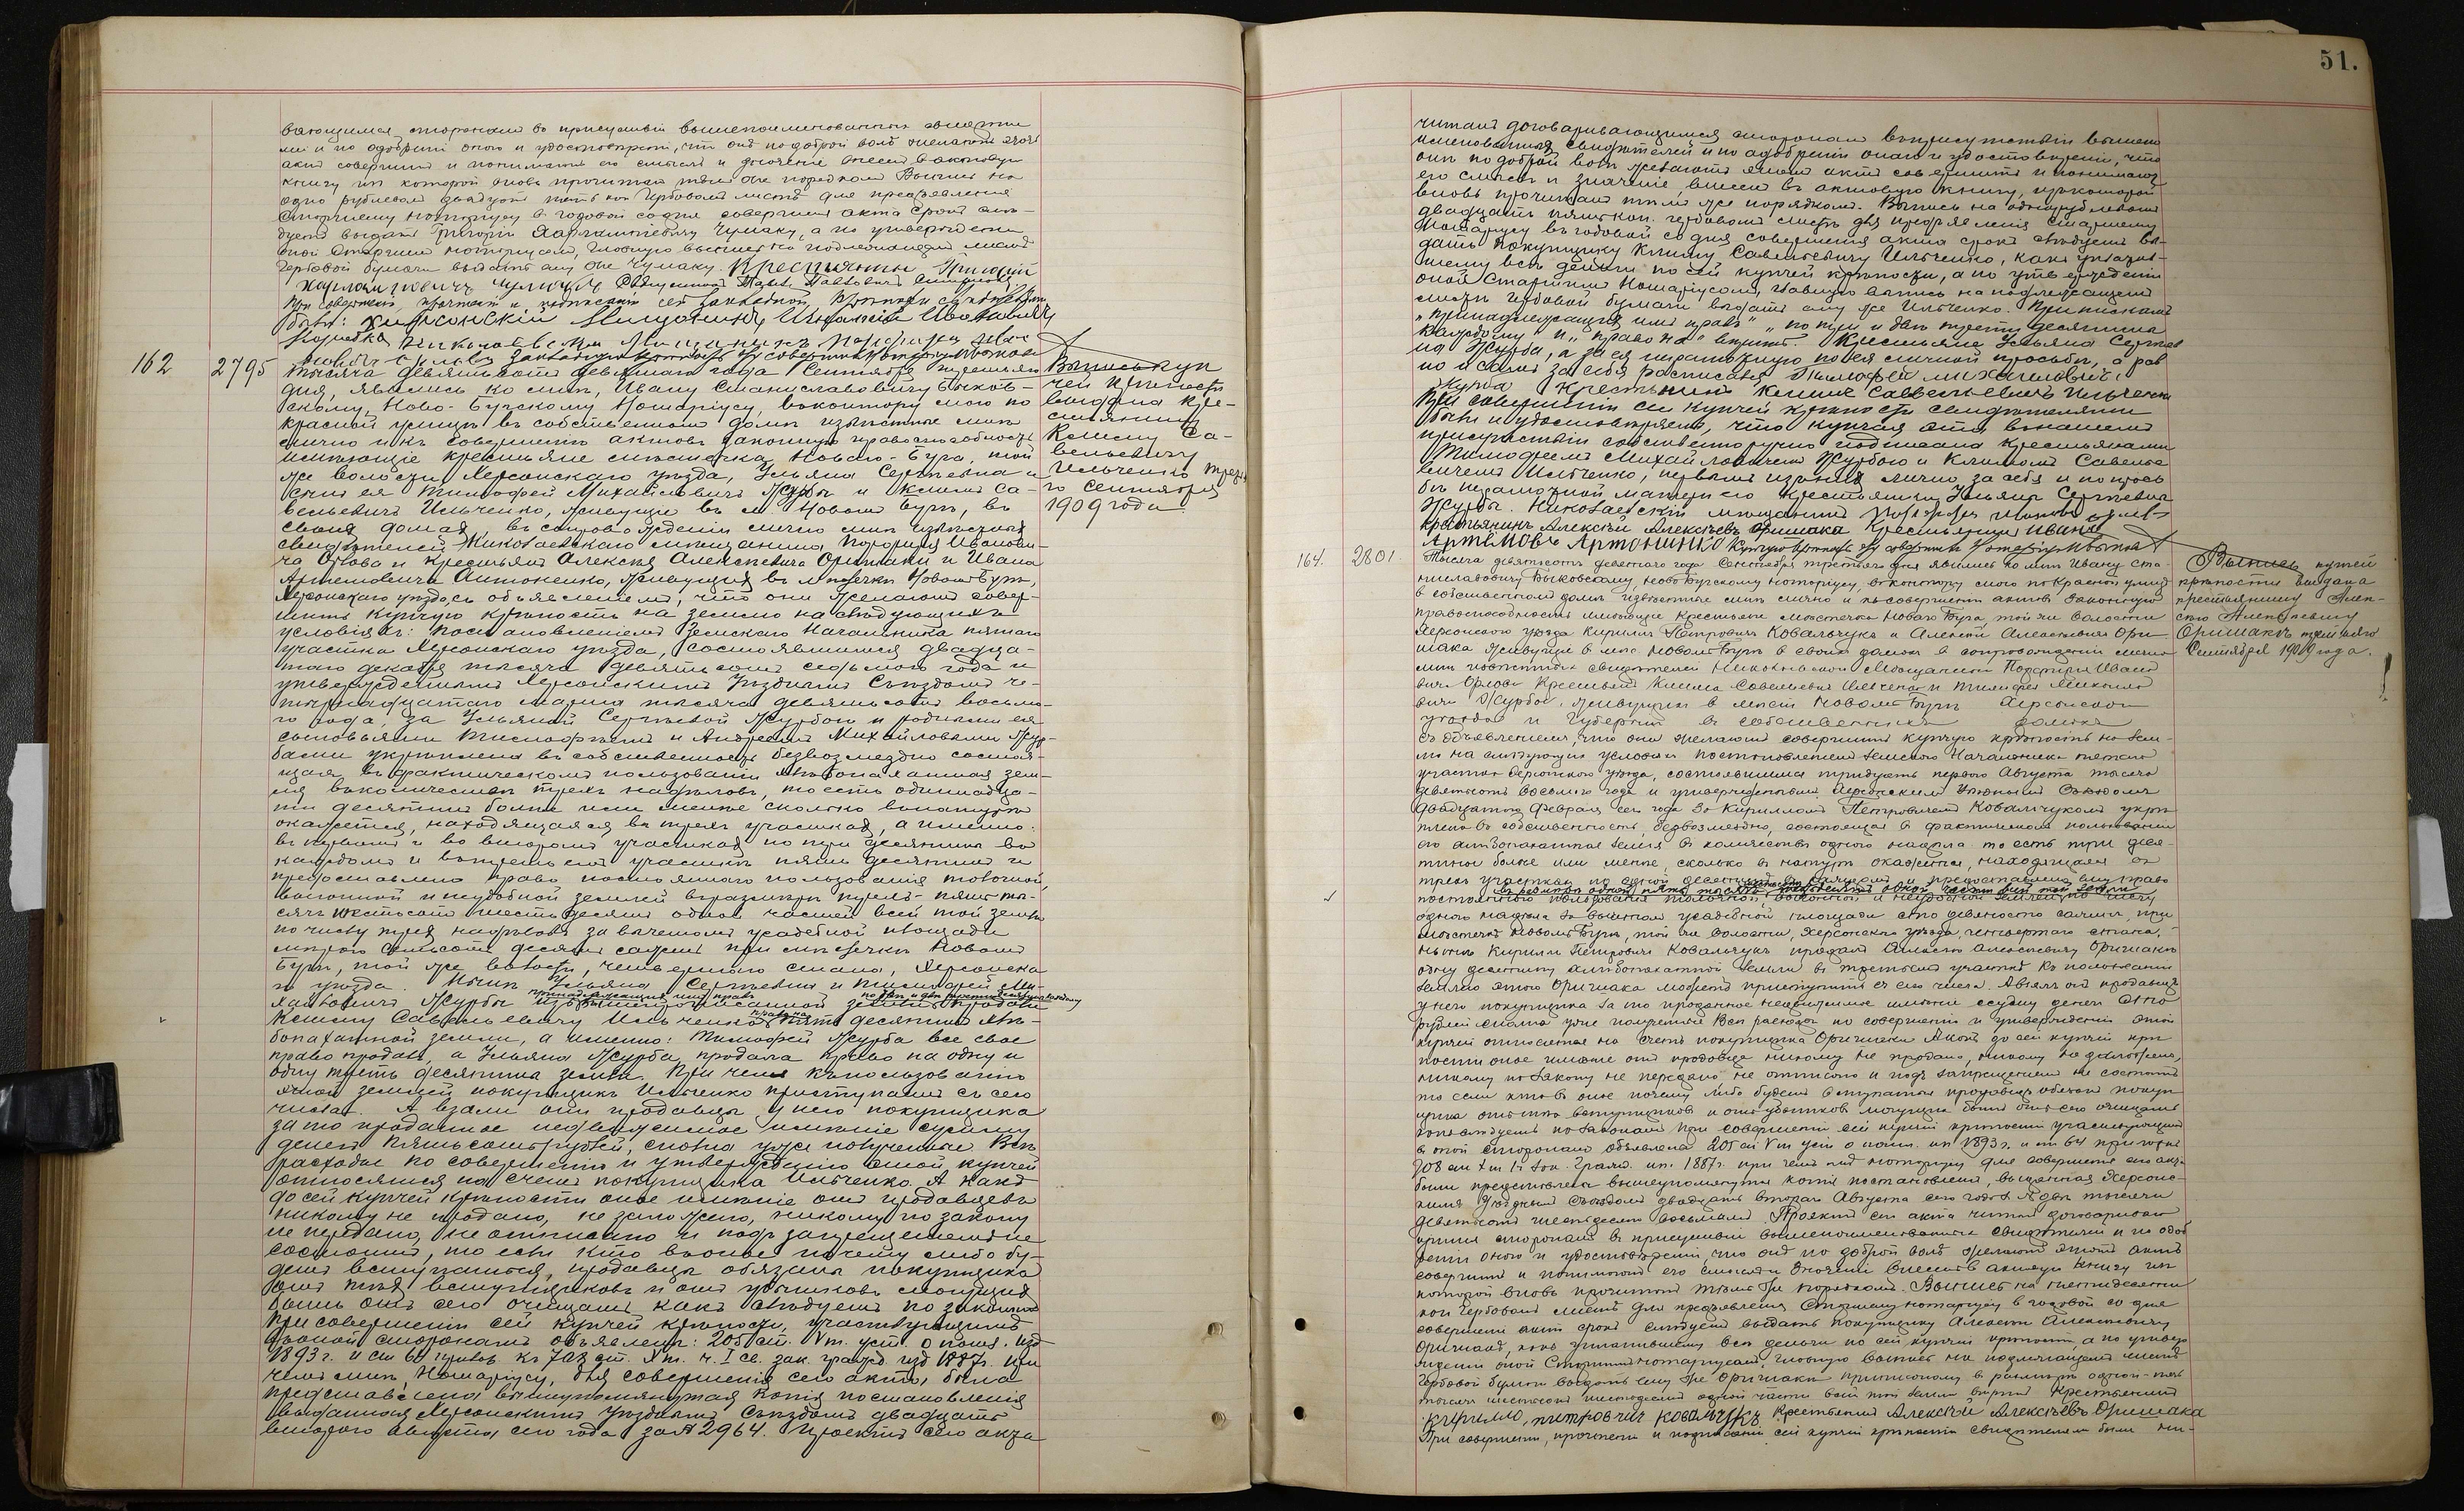 вающимся сторонам во присутствiи вышепоименованных свидетеле
ми и по одобренiи оного и удостоверенiи, что они по доброй воле желают этот
акт совершить и понимают его смысл и значенiе внесен в актовую
книгу из которой вновь прочитан тем же порядком Выпись на
одно рублевом двадцати пять коп гербовом листе для предъявленiя
Старшему Нотарiусу в годовой со дня совершенiя акта срок сле-
дует выдать Григорiю Харлампiевичу Чумаку, а по утвержденiи
оной Старшим нотарiусом, главную выпись на подлежащем листе
гербовой бумаги выдать ему же Чумаку. Крестьянин Григорiй
Харлампiевичъ Чумакъ
При совершенiи, прочтенiи и подписанiи сей закладной крепости свидетелями
были: Херсонскiй Мещанинъ Ивановичъ
Николаевскiй Мещанинъ Порфирiй Иван
162 2795 Тысяча девятьсотъ девятаго года Сентября третьяго
дня, явились ко мнѣ, Ивану Станиславовичу Быков-
скому, Ново-Бугскому Нотарiусу, въ контору мою по
красной улицѣ въ собственномъ домѣ извѣстные мнѣ
лично и къ совершенiю актовъ законную правоспособность
имѣющiе крестьяне мѣстечка Новаго-Буга, той
же волости Херсонскаго уѣзда, Ульяна Сергѣевна и
сынъ ея Тимофей Михайловичъ Журбы и Климъ Са-
вельевичъ Ильченко, живущiе въ м. Новомъ Бугѣ, въ
своихъ домахъ, въ сопровожденiи лично мнѣ извѣстныхъ
свидѣтелей Николаевскаго мѣщанина Порфирiя Иванови-
ча Орлова и крестьянъ Алексѣя Алексѣевича Оришаки и Ивана
Артемовича Антоненко, живущихъ въ мѣстечкѣ Новомъ Бугѣ,
Херсонскаго уѣзда, съ объявленiемъ, что они желаютъ совер-
шить купчую крѣпость на землю на слѣдующихъ
условiяхъ: постановленiемъ Земскаго Начальника пятаго
участка Херсонскаго уѣзда, состоявшимся двадца-
таго декабря тысяча девятьсотъ седьмого года и
утвержденнымъ Херсонскимъ Уѣзднымъ Съѣздомъ че-
тырнадцатаго марта тысяча девятьсотъ восьмо-
го года, за Ульяной Сергѣевой Журбою и родными ея
сыновьями Тимофѣемъ и Андреемъ Михайловыми Жур-
бами укрѣплена въ собственность безвозмездно состоя-
щая въ фактическомъ пользованiи хлѣбопахатная зем-
ля въ количествѣ трехъ надѣловъ, то есть одиннадца-
ти десятинъ болѣе или менѣе сколько въ натурѣ
окажется, находящаяся въ трехъ участкахъ, а именно:
въ первомъ и во второмъ участкахъ по три десятины въ
каждомъ и въ третьемъ участкѣ пять десятинъ и
предоставлено право постояннаго пользованiя толочной,
выгонной и неудобной землей въ размѣрѣ трехъ пять ты-
сячъ шестьсотъ шестьдесятъ одной частей всей той земли
по числу трехъ надѣловъ за вычетомъ усадебной площади
мѣрою семьсотъ десять сажень при мѣстечкѣ Новомъ
Бугѣ, той же волости, четвертаго стана, Херсонска-
го уѣзда. Нынѣ Ульяна Сергѣевна и Тимофей Ми-
хайловичъ Журбы изъ вышеописанной земли продали
принадлежащихъ имъ правъ по три и двѣ трети десятины каждому
Климу Савельевичу Ильченко право на пять десятинъ хлѣ-
бопахатной земли, а именно: Тимофей Журба все свое
право продалъ, а Ульяна Журба продала право на одну и
одну треть десятины земли. При чемъ къ пользованiю
этой землей покупщикъ Ильченко приступаетъ съ сего
числа. А взяли они продавцы у него покупщика
за то проданное недвижимое имѣнiе сумму
денегъ пятьсотъ рублей, сполна уже полученные. Всѣ
расходы по совершенiю и утвержденiю этой купчей
относятся на счетъ покупщика Ильченко. А какъ
до сей купчей крѣпости оное имѣнiе отъ продавцевъ
никому не продано, не заложено, никому по закону
не передано, не отписано и подъ запрещенiемъ не
состоитъ, то если кто въ оное почему либо бу-
детъ вступаться, продавцы обязаны покупщика
отъ тѣхъ вступщиковъ и отъ убытковъ могущихъ
быть отъ сего очищать какъ слѣдуетъ по законамъ
При совершенiи сей купчей крѣпости, участвующимъ
въ оной сторонамъ объявлены: 205 ст. V т. уст. о пошл. изд
1893 г. и ст 64 прилож. къ 708 ст. X т. ч. I св. зак. гражд. изд 1887 г. при
чемъ мнѣ, Нотарiусу, для совершенiя сего акта, была
представлена вышеупомянутая копiя постановленiя
выданная Херсонскимъ Уѣзднымъ Съѣздомъ двадцать
второго августа сего года за № 2964. Проектъ сего акта
Выпись куп
чей крѣпости
выдана кре-
стьянину
Климу Са-
вельевичу
Ильченко третья-
го Сентября
1909 года.
51.
читанъ договаривающимся сторонамъ въ присутствiи вышепо
именованныхъ свидѣтелей и по одобренiи онаго и удостовѣренiи, что
они по доброй волѣ желаютъ этотъ актъ совершить и понимаютъ
его смыслъ и значенiе внесенъ въ актовую книгу, изъ которой
вновь прочитанъ тѣмъ же порядкомъ. Выпись на однорублевомъ
двадцать пять коп. гербовомъ листѣ для предъявленiя Старшему
Нотарiусу въ годовой со дня совершенiя акта срокъ слѣдуетъ вы-
дать покупщику Климу Савельевичу Ильченко, какъ уплатив-
шему всѣ деньги по сей купчей крѣпости, а по утвержденiи
оной Старшимъ Нотарiусомъ, главную выпись на подлежащемъ
листѣ гербовой бумаги выдать ему же Ильченко. Приписаннымъ
„принадлежащихъ имъ правъ" „по три и двѣ трети десятины
каждому" и „право на" вѣрить. Крестьяне Ульяна Сергѣев
на Журба, а за ея неграмотную по ея личной просьбѣ, а рав
но и самъ за себя расписался Тимофей Михаиловичъ
Журба Крестьянинъ Климъ Савельевичъ Ильченко
При совершенiи сей купчей крѣпости свидѣтелями
были и удостовѣряемъ, что купчая эта въ нашемъ
присутствiи собственноручно подписана крестьянами
Тимофеемъ Михайловичемъ Журбою и Климомъ Савелье
вичемъ Ильченко, первымъ изъ нихъ лично за себя и по прось
бѣ неграмотной матери его крестьянки Ульяны Сергѣевны
Журбы. Николаевскiй мѣщанинъ Порфирiй Ивановъ
Крестьянинъ Алексѣй Алексѣевъ Оришака Крестьянинъ Иванъ
Артемовъ Антоненко
164. 2801. Тысяча девятьсотъ девятаго года Сентября третьяго дня явились ко мнѣ Ивану Ста-
ниславовичу Быковскому, Ново Бугскому Нотарiусу, въ контору мою по Красной улицѣ
в собственномъ домѣ извѣстные мнѣ лично и къ совершенiю актовъ законную
правоспособность имѣющiе крестьяне мѣстечка Новаго Буга, той же волости
Херсонскаго уѣзда Кирилъ Петровичъ Ковальчукъ и Алексѣй Алексѣевичъ Ори-
шака живущiе в мѣс. Новомъ Бугѣ в своихъ домахъ в сопровожденiи лично
мнѣ извѣстныхъ свидѣтелей Николаевскаго Мѣщанина Порфирiя Ивано
вича Орлова Крестьянъ Клима Савельевича Ильченко и Тимофея Михайло
вича Журбы, живущихъ в мѣст Новомъ Бугѣ Херсонскаго
уѣзда и Губернiи в собственныхъ домахъ
съ объявленiемъ, что они желаютъ совершить купчую крѣпость на зем-
лю на слѣдующихъ условiяхъ постановленiемъ Земскаго Начальника пятаго
участка Херсонскаго уѣзда, состоявшимся тридцать перваго Августа тысяча
девятьсотъ восьмого года и утвержденнымъ Херсонскимъ Уѣзднымъ Съѣздомъ
двадцатаго Февраля сего года за Кириломъ Петровичемъ Ковальчукомъ укрѣ
плена въ собственность, безвозмездно, состоящая в фактическомъ пользованiи
его хлѣбопахатная земля в количествѣ одного надѣла то есть три деся-
тины болѣе или менѣе, сколько в натурѣ окажется, находящаяся въ
трехъ участкахъ по одной десятинѣ в каждомъ и предоставлено ему право
постояннаго пользованiя толочной, выгонной и неудобной землей по числу
одного надѣла за вычетомъ усадебной площади сто девяносто сажень, при
мѣстечкѣ Новомъ Бугѣ, той же волости, Херсонскаго уѣзда, четвертаго стана,
Нынѣ Кирилъ Петровичъ Ковальчукъ продалъ Алексѣю Алексѣевичу Оришакѣ
одну десятину хлѣбопахатной земли в третьемъ участкѣ Къ пользованiю
землею этою Оришака можетъ приступить съ сего числа. А взялъ онъ продавецъ
у него покупщика за то проданное недвижимое имѣнiе сумму денегъ сто
рублей сполна уже полученные Всѣ расходы по совершенiи и утвержденiи этой
купчей относятся на счетъ покупщика Оришаки А какъ до сей купчей крѣ
пости оное имѣнiе отъ продавца никому не продано, никому не заложено,
никому по закону не передано не отписано и подъ запрещенiемъ не состоитъ
то если кто въ оное почему либо будетъ вступаться продавецъ обязанъ покуп
щика отъ тѣхъ вступщиковъ и отъ убытковъ могущихъ быть отъ сего очищать
какъ слѣдуетъ по законамъ При совершенiи сей купчей крѣпости участвующимъ
в оной сторонамъ объявлена 205 ст V т уст о пошл. изд 1893 г. и ст 64 прилож
708 ст X т 1 ч зак. Гражд. изд. 1887 г. при чемъ мнѣ нотарiусу для совершенiя сего акта
была представлена вышеупомянутая копiя постановленiя, выданная Херсонс-
кимъ Уѣзднымъ Съѣздомъ двадцать второго Августа сего года за № две тысячи
девятьсотъ шестьдесятъ восьмымъ. Проектъ сего акта читанъ договариваю
щимся сторонамъ в присутствiи вышепоименованныхъ свидѣтелей и по одоб
ренiи оного и удостовѣренiи, что они по доброй волѣ желаютъ этотъ актъ
совершить и понимаютъ его смыслъ и значенiе внесенъ в актовую книгу из
которой вновь прочитанъ тѣмъ же порядкомъ. Выпись на пятидесяти
коп гербовомъ листѣ для предъявленiя Старшему нотарiусу в годовой со дня
совершенiя акта срокъ слѣдуетъ выдать покупщику Алексѣю Алексѣевичу
Оришакѣ, какъ уплатившему всѣ деньги по сей купчей крѣпости, а по утвер
жденiи оной Старшимъ нотарiусомъ, главную выпись на подлежащемъ листѣ
гербовой бумаги выдать ему же Оришакѣ приписанному в размѣрѣ одной пять
тысячъ шестьсотъ шестьдесятъ одной части всей той земли вѣрить Крестьянинъ
Кирилло, питровичъ Ковальчукъ. Крестьянинъ Алексѣй Алексѣевъ Оришака
При совершенiи, прочтенiи и подписанiи сей купчей крѣпости свидѣтелями были Ни-
Выпись купчей
крѣпости выдана
крестьянину Алек-
сѣю Алексѣевичу
Оришакѣ третьяго
Сентября 1909 года.